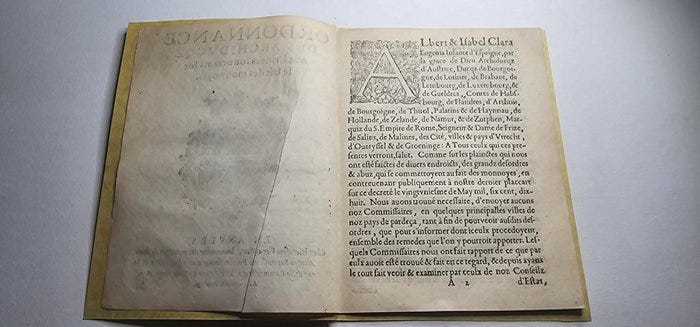 ORDONNANCE
DES ARCHIDVCQZ
EN ANVERS
ALbert & Isabel Clara
Eugenia Infante d'Espaigne, par
la grace de Dieu Archiducqz
d'Austrice, Ducqz de Bourgoi-
gne, de Lothier, de Brabant, de
Lembourg, de Luxembourg, &
de Gueldres, Contes de Habs-
bourg, de Flandres, d'Arthois,
de Bourgoigne, de Thirol, Palatins & de Haynnau, de
Hollande, de Zelande, de Namur, & de Zutphen, Mar-
quiz du S. Empire de Rome, Seigneur & Dame de Frize,
de Salins, de Malines, des Cité, villes & pays d'Vtrecht,
d'Oueryssel & de Groeninge: A Tous ceulx qui ces pre-
sentes verront, salut. Comme sur les plainctes qui nous
ont esté faictes de diuers endroicts, des grandz desordres
& abuz, qui se commettoyent au faict des monnoyes, en
contreuenant publiquement à nostre dernier placcart
sur ce decreté le vingtvniesme de May mil, six cent, dix-
huit. Nous auons trouué necessaire, d'enuoyer aucuns
noz Commissaires, en quelques principalles villes de
noz pays de pardeça, tant à fin de pourueoir ausdits des-
ordres, que pour s'informer dont iceulx procedoyent,
ensemble des remedes que l'on y pourroit apporter. Les-
quels Commissaires nous ont fait rapport de ce que par
eulx auoit esté trouué & fait en ce regard, & depuis ayans
le tout fait veoir & examiner par ceulx de noz Conseilz
A 2 d'Estat,